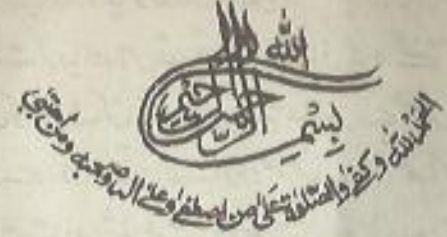 بسم الله الرحمن الرحيم
الحمد لله وكفى والصلوة على من اصطفى وعلى اله وصحبه ومن اجتبى